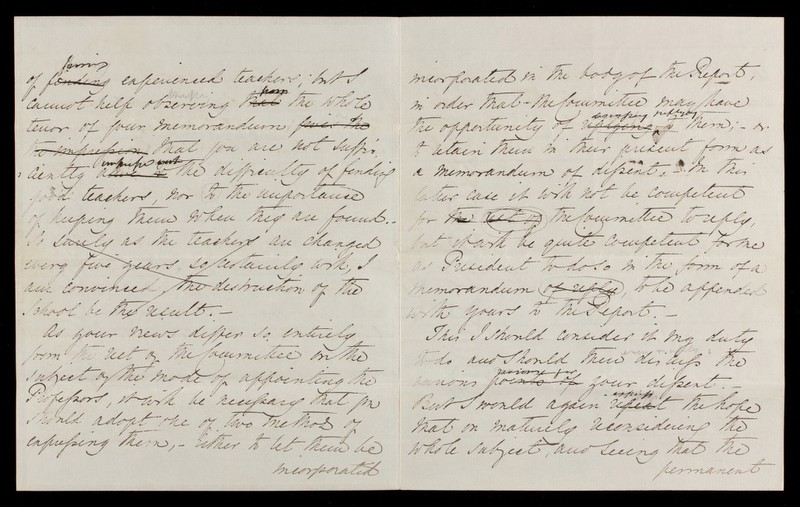 of finding experienced teachers; but I
cannot help observing that from the whole
tenor of your memorandum give the
the impression that you are not suffi-
ciently alive to impressed with the difficulty of finding
good teachers, nor to the importance
of keeping them when they are found. -
So surely as the teachers are changed
every five years, so certainly will, I
am convinced, the destruction of the
School be the result. -
As your views differ so entirely
from the rest of the Committee on the
subject of the mode of appointing the
Professors, it will be necessary that you
should adopt one of two methods of
expressing them, - Either to let them be
incorporated
incorporated in the body of the Report,
in order that the Committee may have
the opportunity of them; - or
to retain them in their present form as
a memorandum of dissent. - In this
latter case it will not be competent
for the rest of the Committee to reply,
but it will be quite competent for me
as President to do so in the form of a
memorandum of reply, to be appended
with yours to the Report. -
This I should consider it my duty
to do and should then discuss the
various points of your dissent. -
But I would again repeat express the hope
that on maturely reconsidering the
whole subject, and seeing that the
permanent